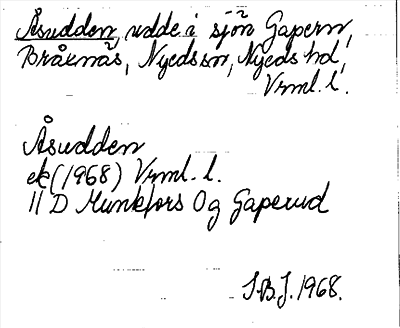 Åsudden, udde i sjön Gapern,
Bråknäs, Nyeds sn, Nyeds hd,
Vrml. l.
Åsudden
ek (1968) Vrml. l.
11 D Munkfors 0g Gaperud
S.B.J. 1968.